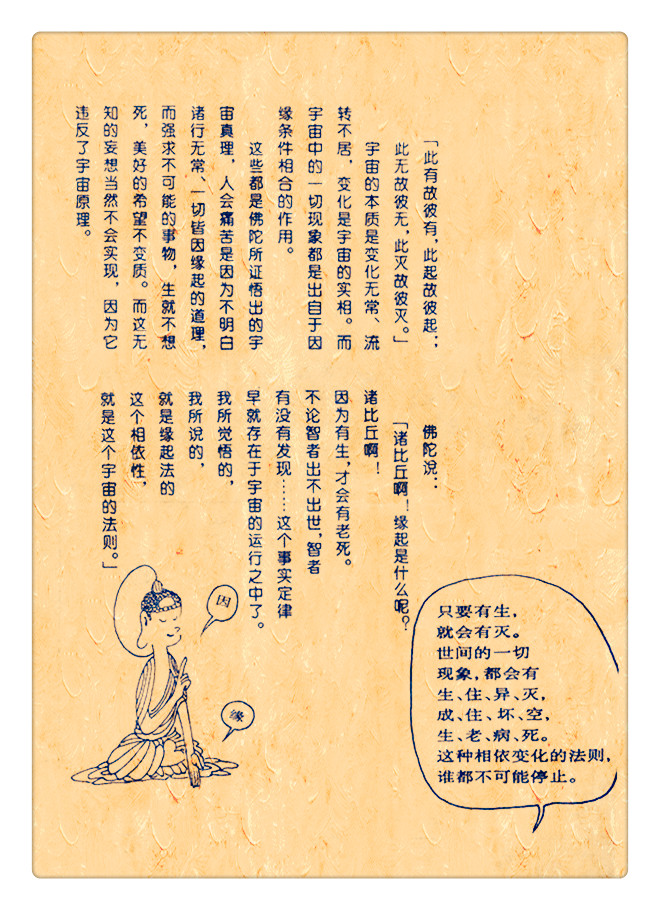 「此有故彼有，此起故彼起；
此无故彼无，此灭故彼灭。」
宇宙的本质是变化无常、流
转不居，变化是宇宙的实相。而
宇宙中的一切现象都是出自于因
缘条件相合的作用。
这些都是佛陀所证悟出的宇
宙真理，人会痛苦是因为不明白
诸行无常、一切皆因缘起的道理，
而强求不可能的事物，生就不想
死，美好的希望不变质。而这无
知的妄想当然不会实现，因为它
违反了宇宙原理。
佛陀说：
「诸比丘啊！缘起是什么呢？
诸比丘啊！
因为有生，才会有老死。
不论智者出不出世，智者
有没有发现……这个事实定律
早就存在于宇宙的运行之中了。
我所觉悟的，
我所说的，
就是缘起法的
这个相依性，
就是这个宇宙的法则。」
因
缘
只要有生，
就会有灭。
世间的一切
现象，都会有
生、住、异、灭，
成、住、坏、空，
生、老、病、死。
这种相依变化的法则，
谁都不可能停止。